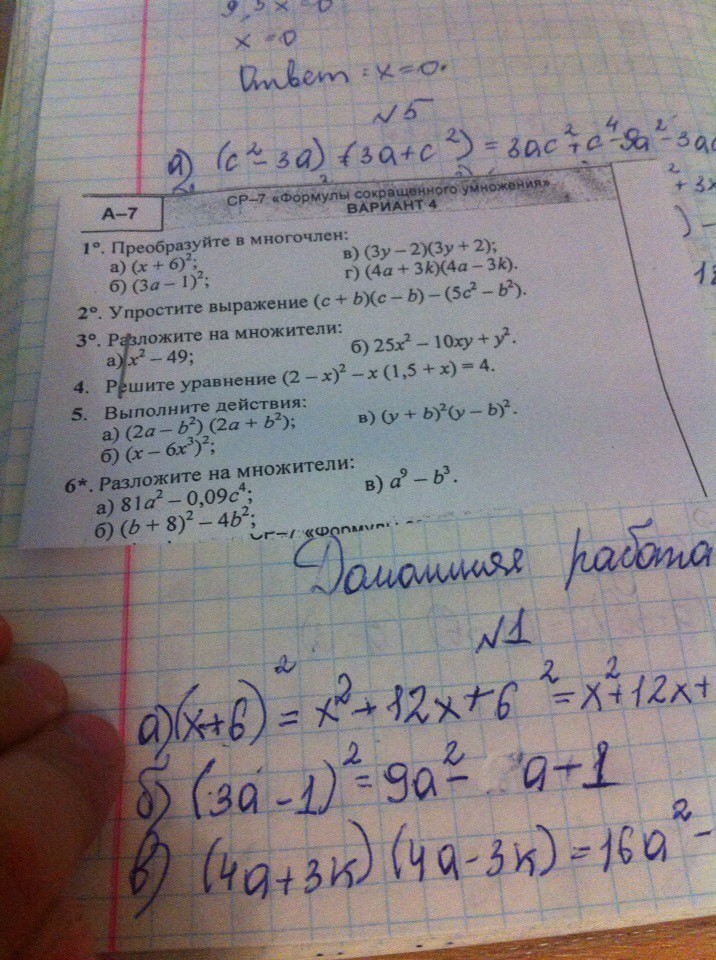 9,5x=0
x=0
Ответ: x=0.
№5
а) (c²-3a) (3a+c²) = 3ac²+c⁴-9a²-3ac
² + 3x
) -
А–7
СР–7 «Формулы сокращенного умножения»
ВАРИАНТ 4
1°. Преобразуйте в многочлен:
а) (x + 6)²;
в) (3y – 2)(3y + 2);
б) (3a – 1)²;
г) (4a + 3k)(4a – 3k).
2°. Упростите выражение (c + b)(c – b) – (5c² – b²).
3°. Разложите на множители:
а) x² – 49;
б) 25x² – 10xy + y².
4. Решите уравнение (2 – x)² – x (1,5 + x) = 4.
5. Выполните действия:
а) (2a – b²) (2a + b²);
в) (y + b)²(y – b)².
б) (x – 6x³)²;
6*. Разложите на множители:
а) 81a² – 0,09c⁴;
в) a⁹ – b³.
б) (b + 8)² – 4b²;
СР–7 «Формулы
Домашняя работа
№1
а) (x+6)² = x²+12x+6² = x²+12x+
б) (3a-1)² = 9a² - a+1
в) (4a+3k) (4a-3k) = 16a² -